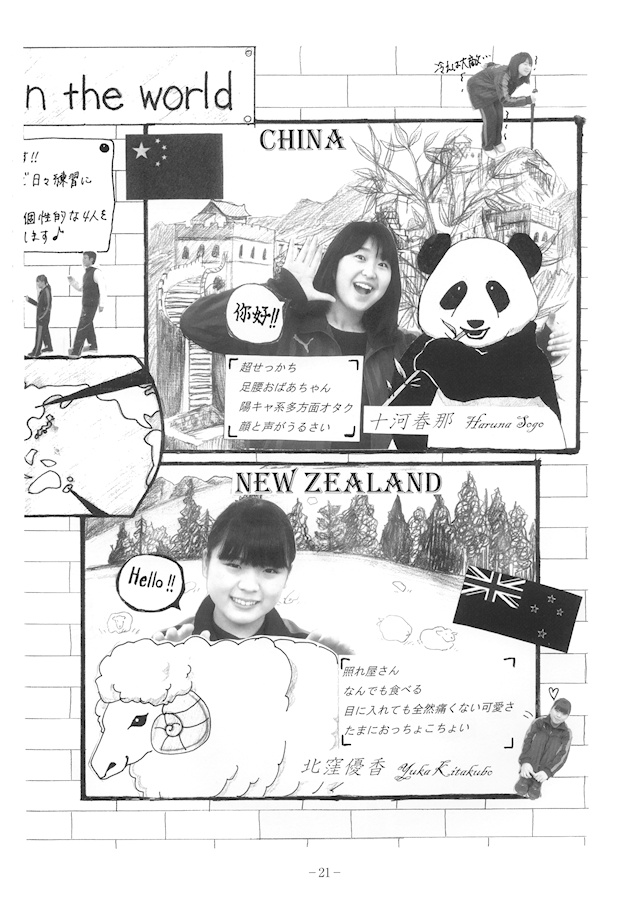 n the world
冷えは大敵…
CHINA
す!!
ご日々練習に
個性的な4人を
します♪
你好!!
超せっかち
足腰おばあちゃん
陽キャ系多方面オタク
顔と声がうるさい
十河春那 Haruna Sogo
NEW ZEALAND
Hello!!
照れ屋さん
なんでも食べる
目に入れても全然痛くない可愛さ
たまにおっちょこちょい
北窪優香 Yuka Kitakubo
-21-